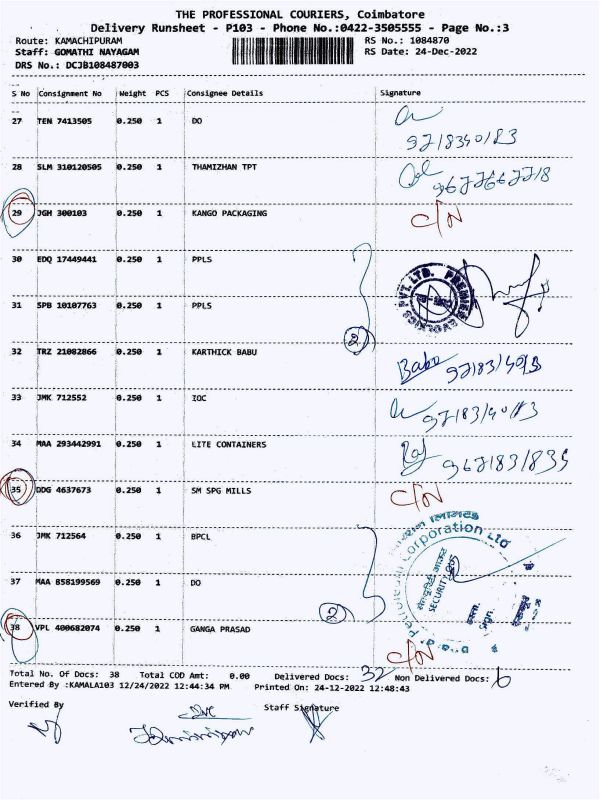 THE PROFESSIONAL COURIERS, Coimbatore
Delivery Runsheet - P103 - Phone No.:0422-3505555 - Page No.:3
Route: KAMACHIPURAM RS No.: 1084870
Staff: GOMATHI NAYAGAM RS Date: 24-Dec-2022
DRS No.: DCJB108487003
S No Consignment No Weight PCS Consignee Details Signature
27 TEN 7413505 0.250 1 DO
28 SLM 310120505 0.250 1 THAMIZHAN TPT
29 JGH 300103 0.250 1 KANGO PACKAGING C/N
30 EDQ 17449441 0.250 1 PPLS
PVT. LTD. PREMIER
31 SPB 10107763 0.250 1 PPLS
2
32 TRZ 21082866 0.250 1 KARTHICK BABU Babu
33 JMK 712552 0.250 1 IOC
34 MAA 293442991 0.250 1 LITE CONTAINERS Raj
35 DDG 4637673 0.250 1 SM SPG MILLS C/N
36 JMK 712564 0.250 1 BPCL
Corporation Ltd
SECURITY
37 MAA 858199569 0.250 1 DO
2
38 VPL 400682074 0.250 1 GANGA PRASAD C/N
Total No. Of Docs: 38 Total COD Amt: 0.00 Delivered Docs: 32 Non Delivered Docs: 6
Entered By :KAMALA103 12/24/2022 12:44:34 PM Printed On: 24-12-2022 12:48:43
Verified By Staff Signature